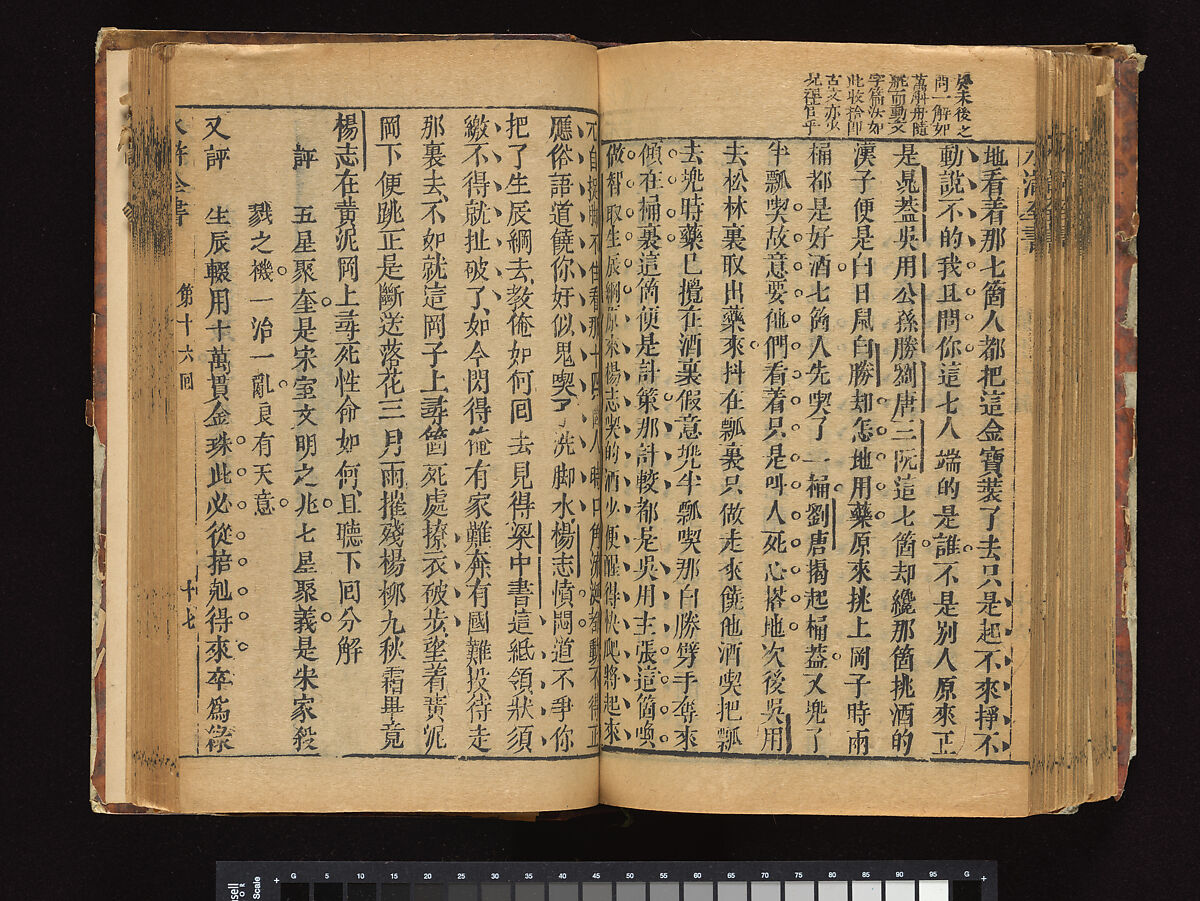 於未後之
問一解如
萬斛舟隨
舵而動文
字簡汰如
此收拾卽
古文亦少
况在官乎
地看着那七箇人都把這金寶裝了去只是起不來掙不
動說不的我且問你這七人端的是誰不是別人原來正
是晁葢吳用公孫勝劉唐三阮這七箇却纔那箇挑酒的
漢子便是白日鼠白勝却怎地用藥原來挑上岡子時兩
桶都是好酒七箇人先喫了一桶劉唐揭起桶葢又兜了
半瓢喫故意要他們看着只是叫人死心搭地次後吳用
去松林裏取出藥來抖在瓢裏只做走來饒他酒喫把瓢
去兜時藥已攪在酒裏假意兜半瓢喫那白勝劈手奪來
傾在桶裏這箇便是計策那計較都是吳用主張這箇喚
做智取生辰綱原來楊志喫的酒少便醒得快爬將起來
兀自捉脚不住看那十四箇人時口角流涎都動不得正
應俗語道饒你奸似鬼喫了洗脚水楊志憤悶道不爭你
把了生辰綱去教俺如何回去見得梁中書這紙領狀須
繳不得就扯破了如今閃得俺有家難奔有國難投待走
那裏去不如就這岡子上尋箇死處撩衣破步望着黃泥
岡下便跳正是斷送落花三月雨摧殘楊柳九秋霜畢竟
楊志在黃泥岡上尋死性命如何且聽下回分解
評 五星聚奎是宋室文明之兆七星聚義是朱家殺
戮之機一治一亂良有天意
又評 生辰輟用十萬貫金珠此必從掊尅得來卒爲祿
水滸全書 第十六回 十七